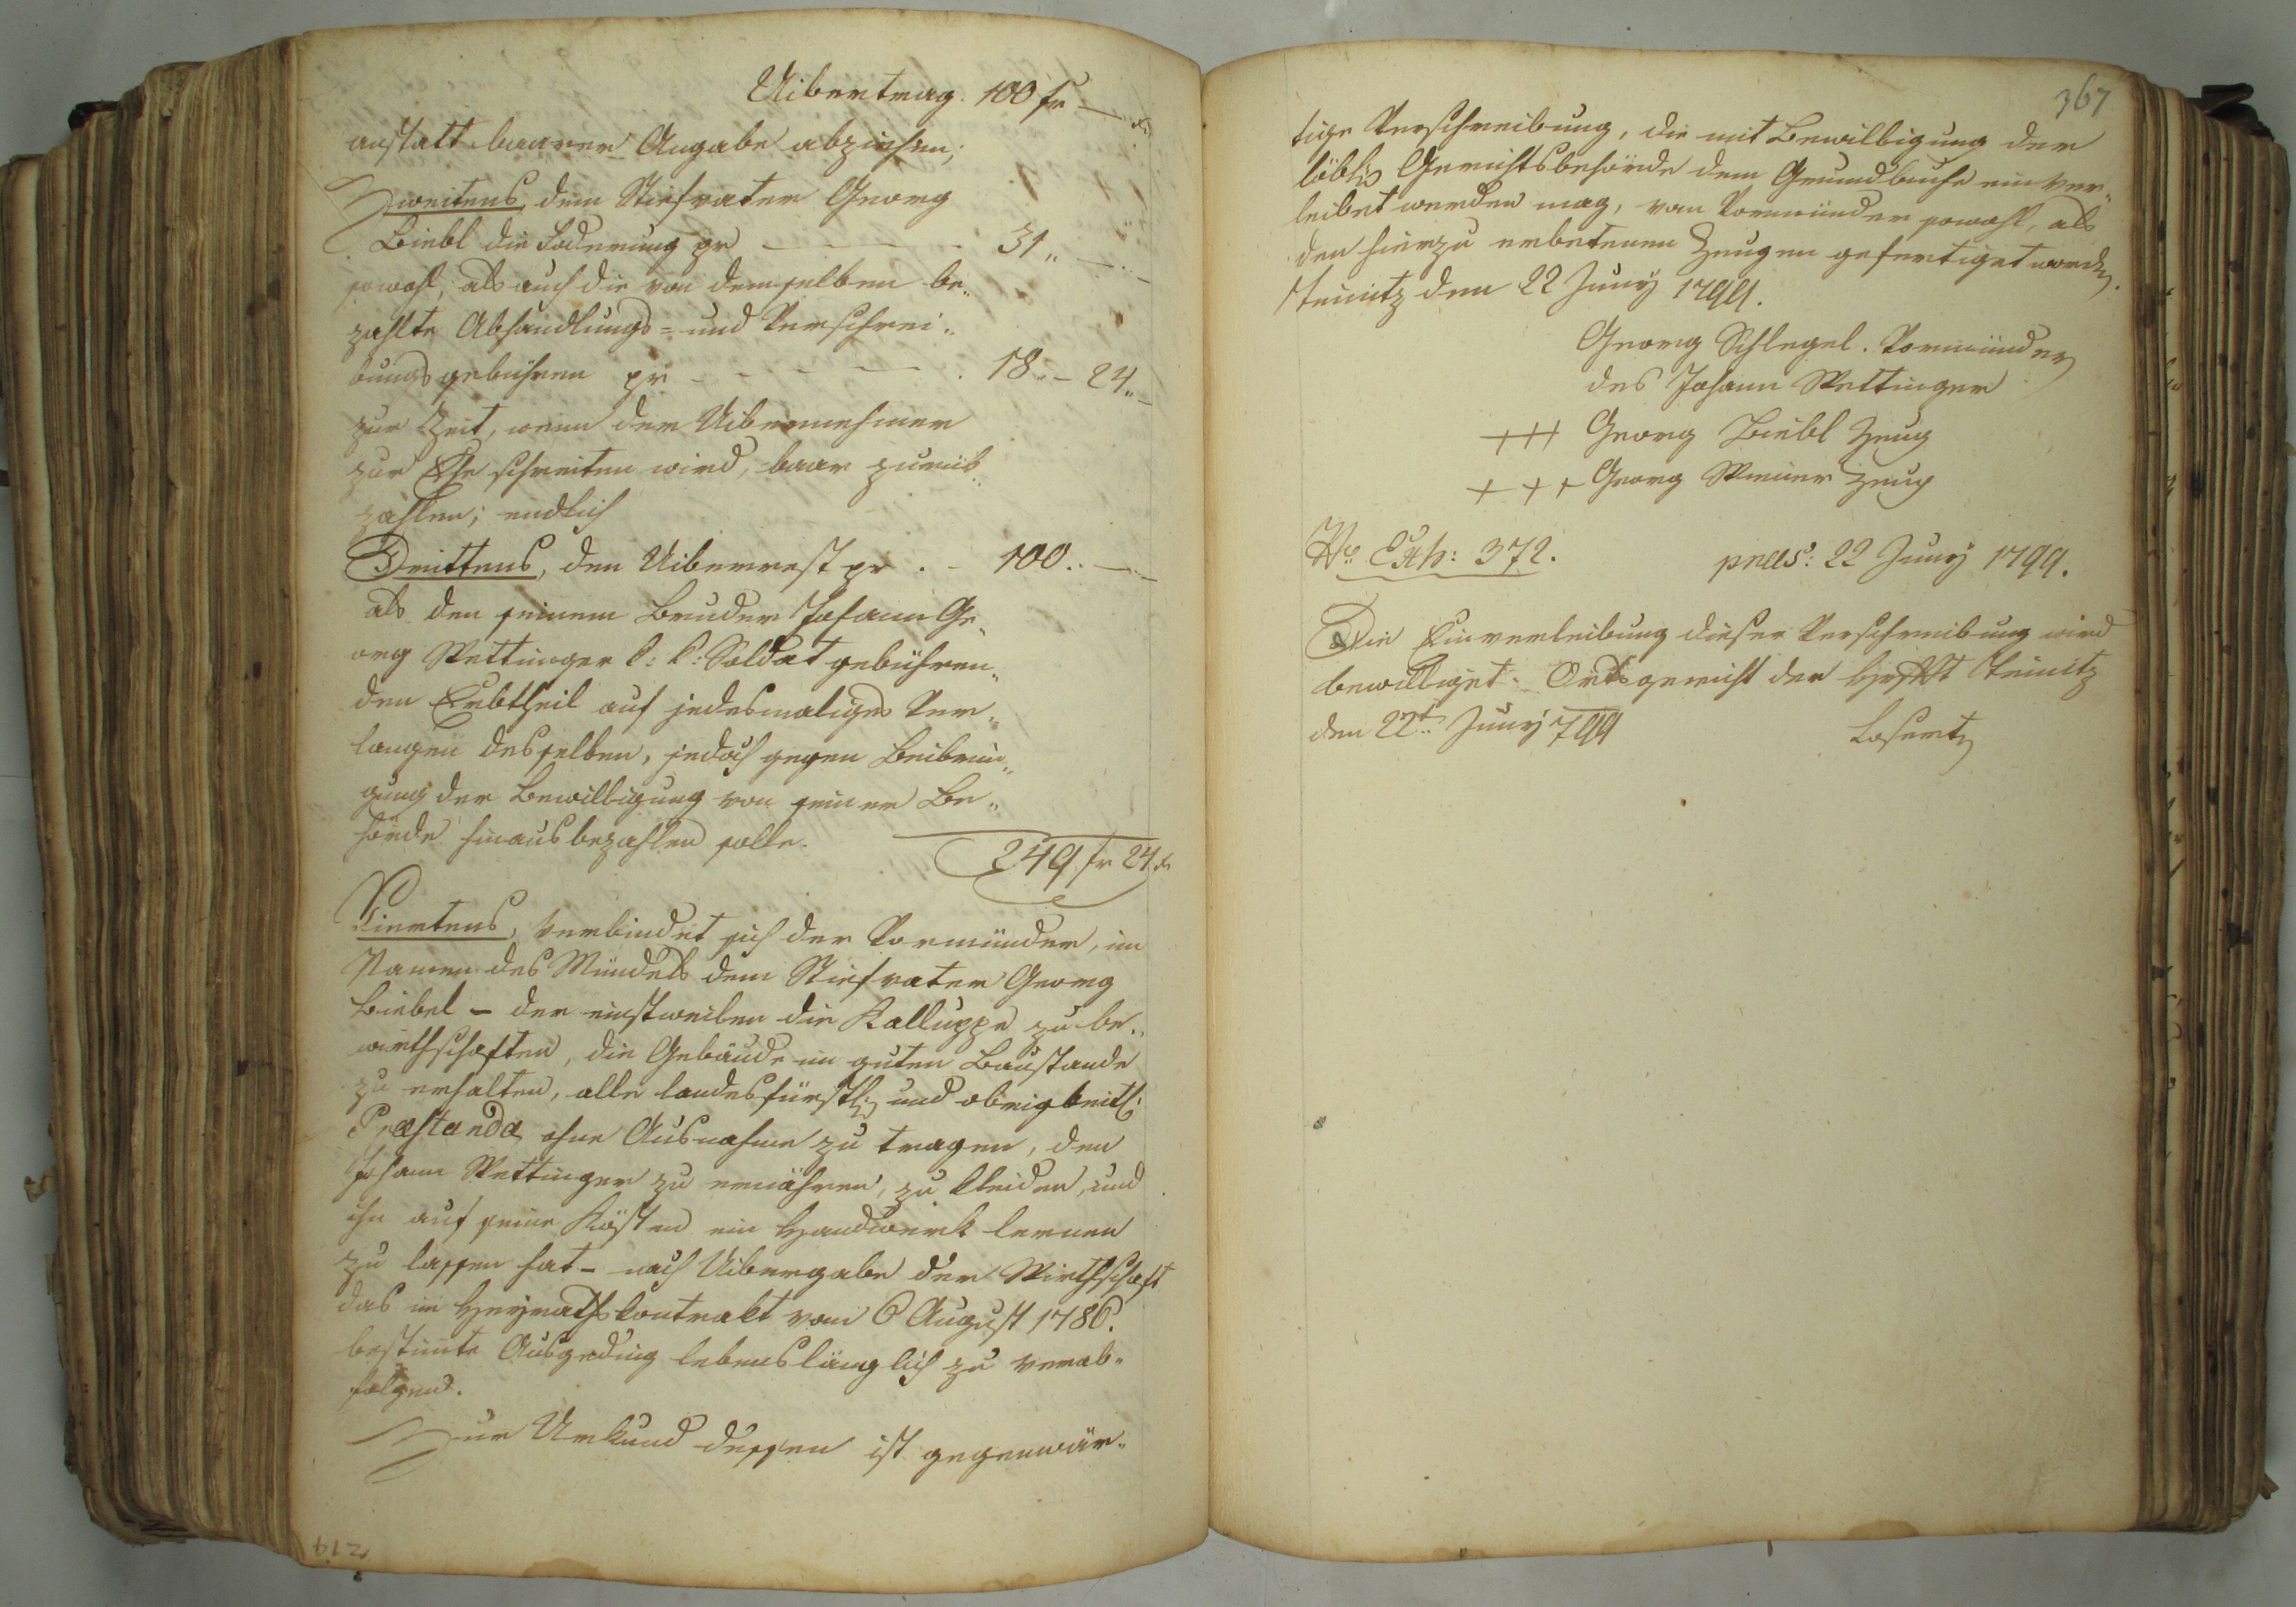 Uibertrag. 100 fr —
anstatt baarer Angabe abziehen;
Zweitens, dem Stiefvater Georg
Biebl die Foderung pr — — — 31 „ —
sowohl, als auch die von demselben be„
zahlte Abhandlungs= und Verschrei„
bungsgebühren pr - - - - - . 18 „ — 24 „
zur Zeit, wenn der Uibernehmer
zur Ehe schreiten wird, baar zurük
zahlen; endlich
Drittens, den Uiberrest pr . - 100 . . —
als den seinem Bruder Johann Ge„
org Wettinger k: k: Soldat gebühren„
den Erbtheil auf jedesmaliges Ver„
langen desselben, jedoch gegen Beibrin„
gung der Bewilligung von seiner Be„
hörde hinausbezahlen solle.
249 fr 24 kr
Viertens, verbindet sich der Vormünder, im
Namen des Mündels dem Stiefvater Georg
Biebel — der einstweilen die Kalluppe zu be„
wirthschaften, die Gebäude im guten Baustande
zu erhalten, alle landesfürstl: und obrigkeitl:
Præstanda ohne Ausnahme zu tragen, den
Johann Wettinger zu ernähren, zu kleiden, und
ihn auf seine Kösten ein Handwerk lernen
zu lassen hat — nach Uibergabe der Wirthschaft
das im Heyrathskontrakt vom 6 August 1786.
bestimte Ausgeding lebenslänglich zu verab„
folgend.
Zur Urkund dessen ist gegenwär„
219
367
tige Verschreibung, die mit Bewilligung der
löbl: Gerichtsbehörde dem Grundbuche einver„
leibet werden mag, vom Vormünder sowohl, als
den hierzu erbetenen Zeugen gefertiget worden.
Teinitz den 22 Juny 1799.
Georg Schlegel. Vormünder
des Johann Wettinger
+++ Georg Biebl Zeug
+ + + Georg Weiner Zeug
No Exh: 372. præs: 22 Juny 1799.
Die Einverleibung dieser Verschreibung wird
bewilliget. Ortsgericht der Hrschft Teinitz
den 22t Juny 799 Losert